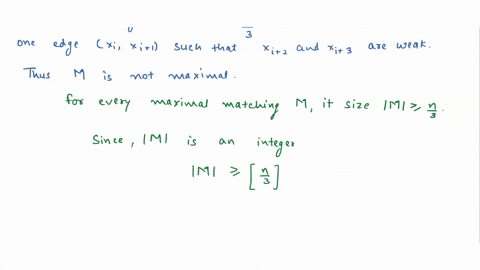 3
one edge (xi, xi+1) such that xi+2 and xi+3 are weak.
Thus M is not maximal.
for every maximal matching M, it size |M| ≥ n/3.
Since, |M| is an integer
|M| ≥ [n/3]